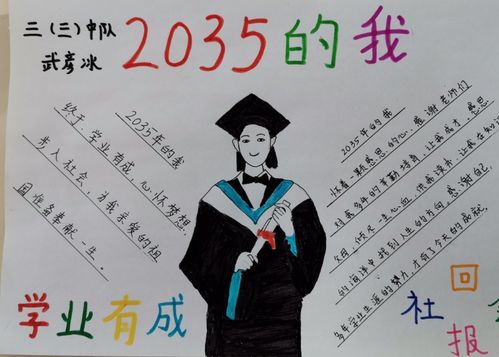 三（三）中队
武彦冰
2035的我
2035年的我
终于，学业有成，心怀梦想，
步入社会，为我亲爱的祖
国准备奉献一生。
2035年的我
怀着一颗感恩的心，感谢老师们
对我多年的辛勤培育，让我成才；感恩
父母，倾尽一生心血，供我读书，让我在知
的海洋中找到人生的方向；感谢自己
多年学业生涯的努力，才有了今天的成就
学业有成
回
社
报